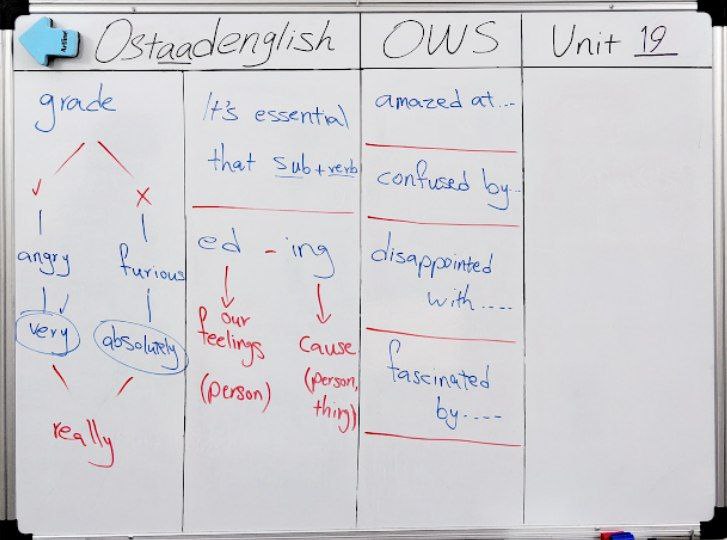 Ostaadenglish OWS Unit 19
grade
✓ ×
angry furious
very absolutely
really
It's essential
that sub + verb
ed - ing
our
feelings
(person)
cause
(person,
thing)
amazed at...
confused by..
disappointed
with ....
fascinated
by....